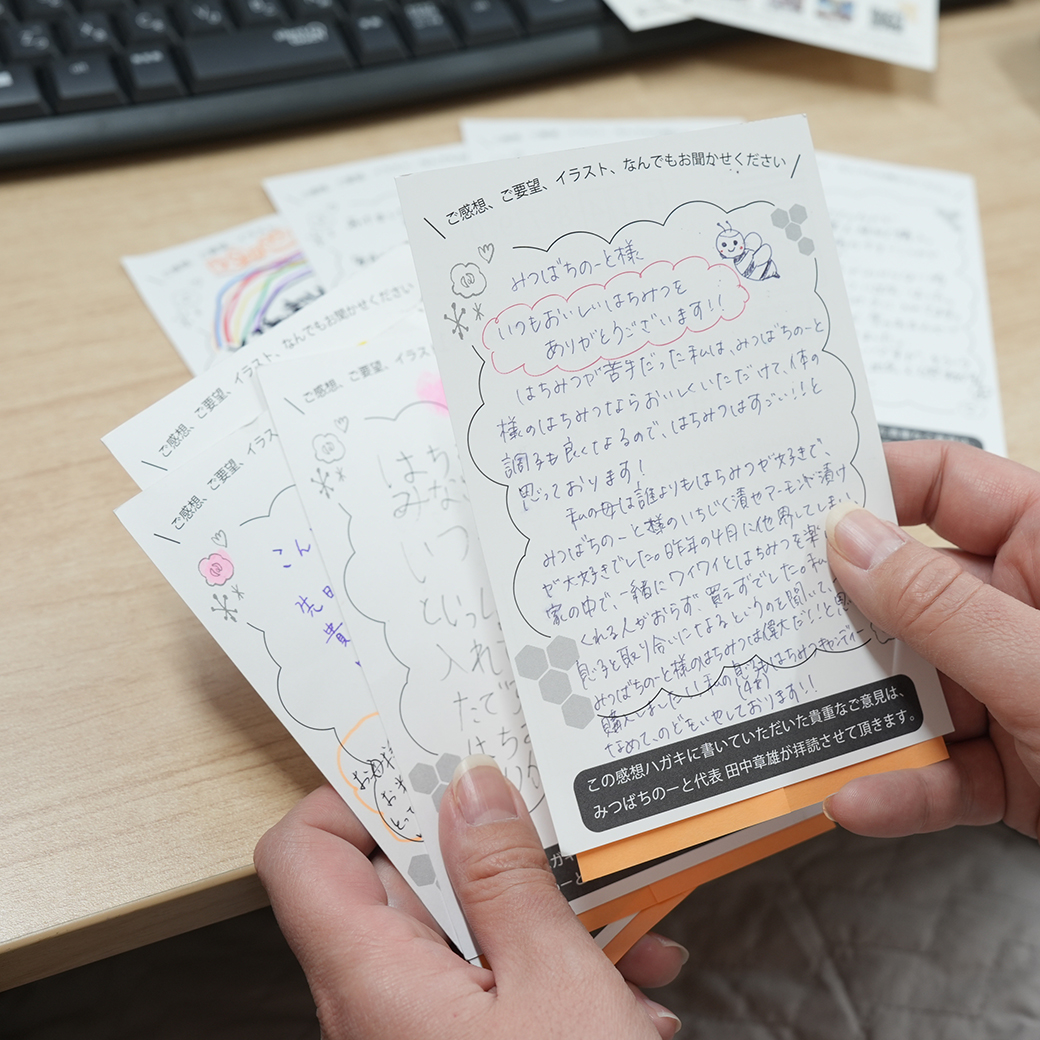 ご感想、ご要望、イラスト、なんでもお聞かせください
みつばちのーと様
いつもおいしいはちみつを
ありがとうございます!!
はちみつが苦手だった私は、みつばちのーと
様のはちみつならおいしくいただけて、体の
調子も良くなるので、はちみつはすごい!!と
思っております!
私の母は誰よりもはちみつが好きで、
みつばちのーと様のいちじく漬やアーモンド漬け
が大好きでした。昨年の4月に他界してしまい、
家の中で、一緒にワイワイとはちみつを楽
くれる人がおらず、買えずでした。私
息子と取り合いになるというのを聞いて、
みつばちのーと様のはちみつは偉大だ!!と思
購入しました!!私の息子ははちみつキャンディー
(4才)
なめて、のどをいやしております!!
この感想ハガキに書いていただいた貴重なご意見は、
みつばちのーと代表 田中章雄が拝読させて頂きます。
ご感想、ご要望、イラスト、なんでもお聞かせください
ご感想、ご要望、イラス
ご感想、ご要望、
こん
先日
貴
はち
みな
いつ
といっし
入れ
たて